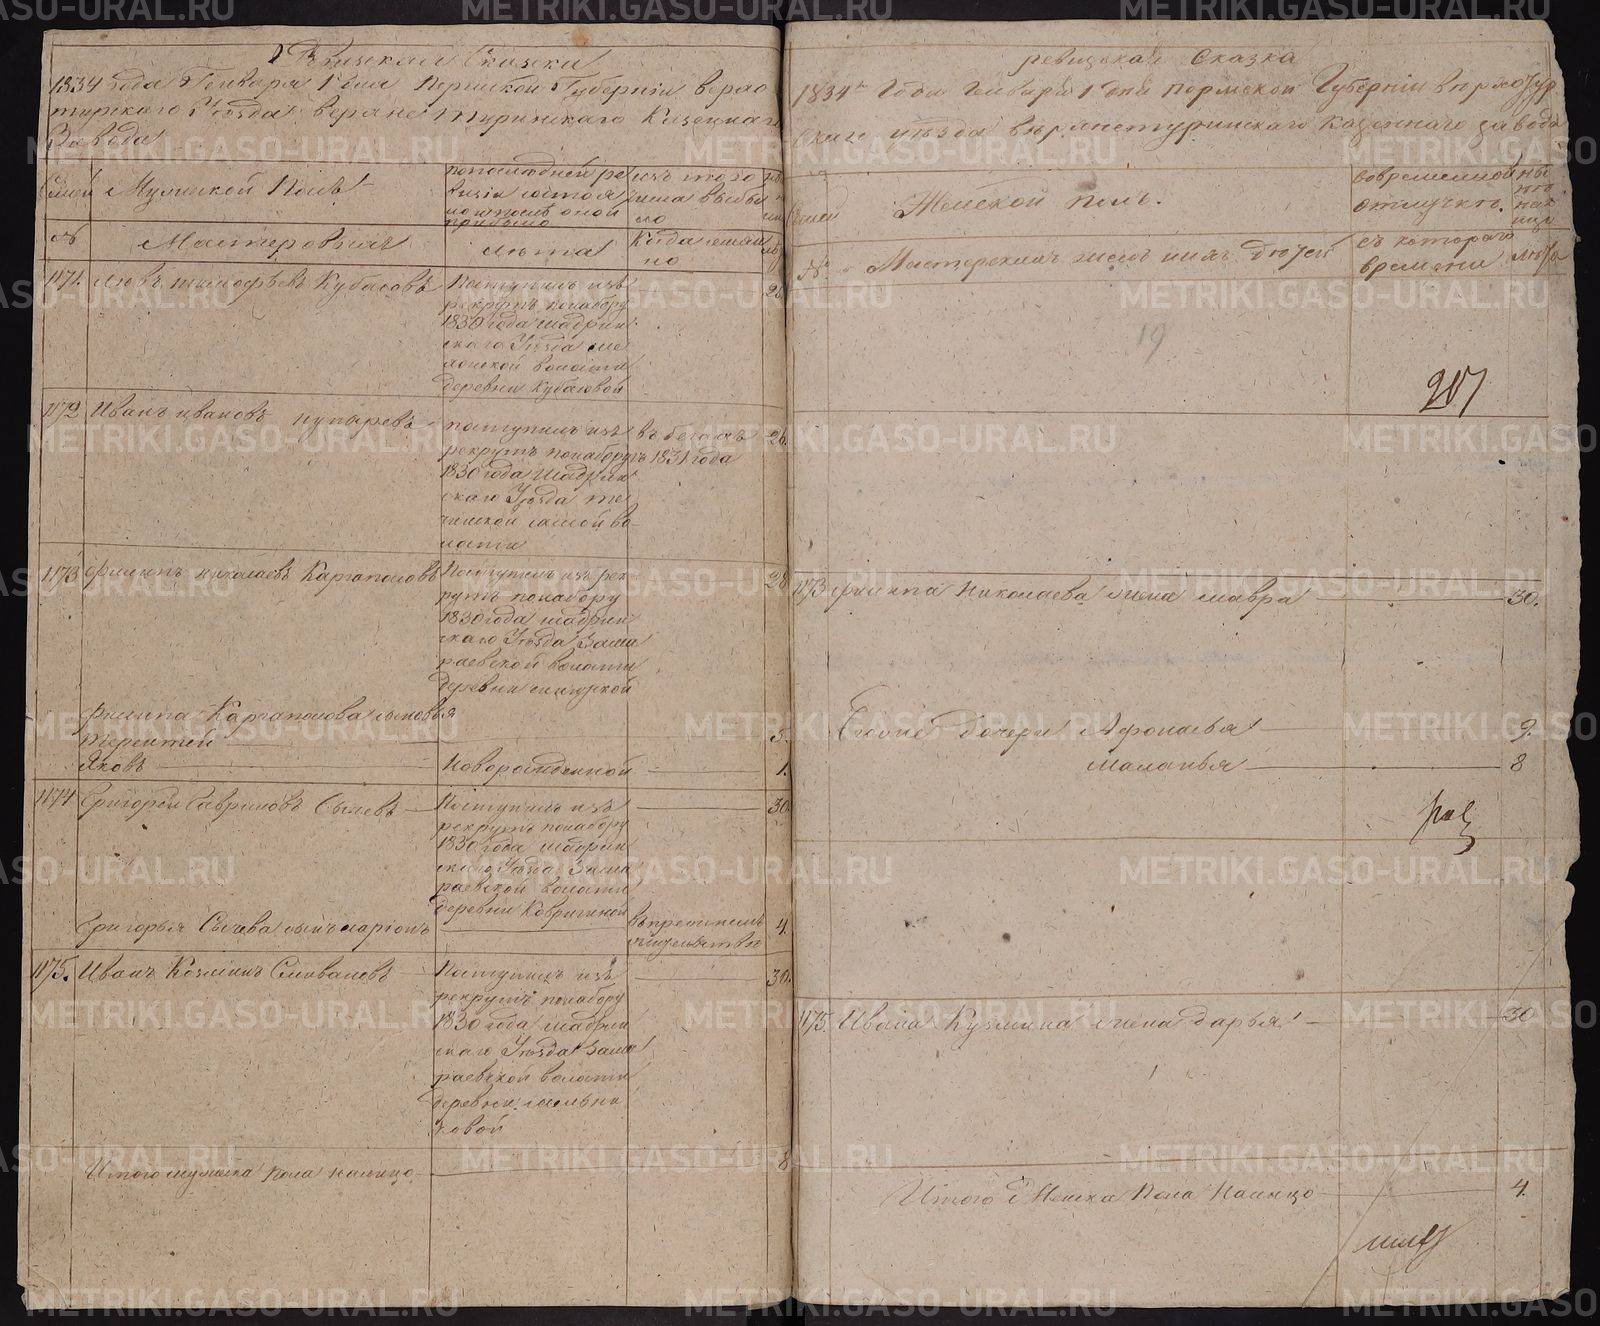 Ревижская Сказка
1834 года Генваря 1 дня Пермской Губернии верхо
турскаго Уѣзда верхне туринскаго Казеннаго
Завода
Семей
Мужеской Полъ
по последней ре
визіи состоя
ло и послѣ оной
прибыло
изъ того
числа выбы
ло
№
Мастеровыхъ
лѣта
Когда имян
но
1171. Левъ тимофѣевъ Кубасовъ
Поступилъ изъ
рекрутъ по набору
1830 года шадрин
скаго Уѣзда
волости
деревни Кубасовой
1172 Иванъ ивановъ пупыревъ
поступилъ изъ
рекрутъ по набору
1830 года Шадрин
скаго Уѣзда те
ченской во
лости
въ бегахъ
съ 1831 года
26
1173 Филипъ николаевъ Каргаполовъ
Поступилъ изъ рек
рутъ по набору
1830 года шадрин
скаго Уѣзда Зама
раевской волости
деревни
28
Филипа Каргаполова сыновья
терентей
3.
Яковъ
Новорожденной
1.
1174 Григорей Гавриловъ Сычевъ
Поступилъ изъ
рекрутъ по набору
1830 года шадрин
скаго Уѣзда Зама
раевской волости
деревни Ковригиной
30
Григорья Сычева сынъ иларіонъ
4.
1175. Иванъ Козминъ
Поступилъ изъ
рекрутъ по набору
1830 года шадрин
скаго Уѣзда Зама
раевской волости
деревни мельни
ковой
30.
Итого мужеска пола налицо
8
ревижская Сказка
1834 года Генваря 1 дня пермской Губерніи верхотур
скаго уѣзда верхнетуринскаго казеннаго завода
Семей
Женской полъ.
вовременной
отлучкѣ.
ны
нѣ
на
лице
№
Мастерскихъ женъ и ихъ дѣтей
съ котораго
времени
лѣта
19
207
1173 Филипа Николаева жена мавра
30.
Евоже Дочери Афонасья
9.
Маланья
8
1175. Ивана Кузмина жена дарья
30
Итого Женска Пола Налицо
4.